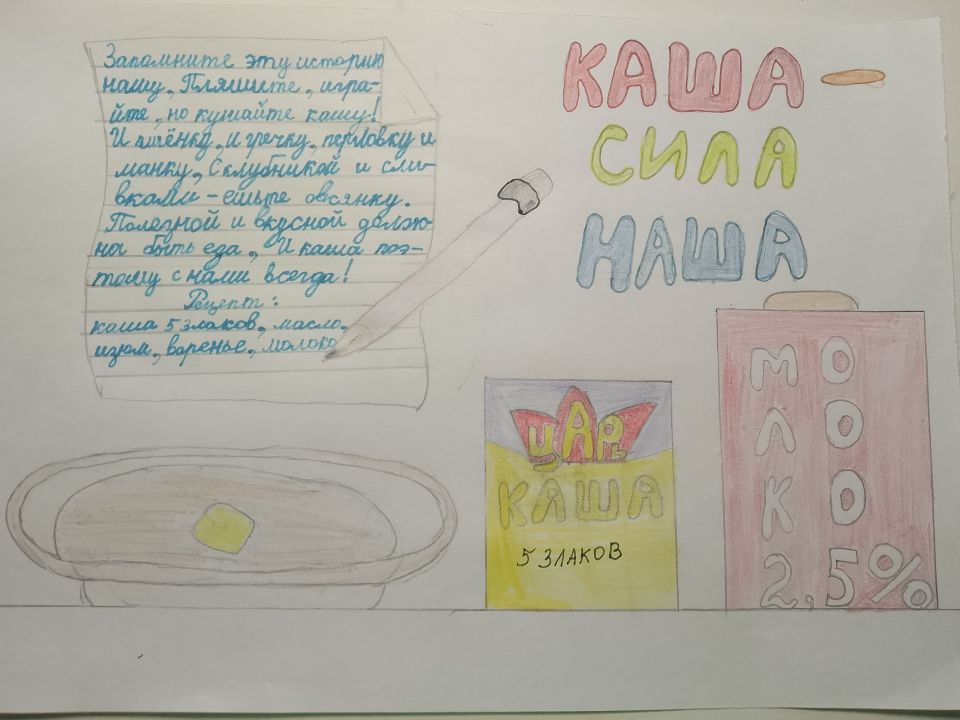 Запомните эту историю
нашу, Пляшите, игра-
йте, но кушайте кашу!
И пшёнку, и гречку, перловку и
манку, С клубникой и сли-
вками - ешьте овсянку.
Полезной и вкусной долж-
на быть еда, И каша поэ-
тому с нами всегда!
Рецепт:
каша 5 злаков, масло,
изюм, варенье, молоко
КАША-
СИЛА
НАША
ЦАРЬ
КАША
5 ЗЛАКОВ
МО
ЛО
КО
2,5%